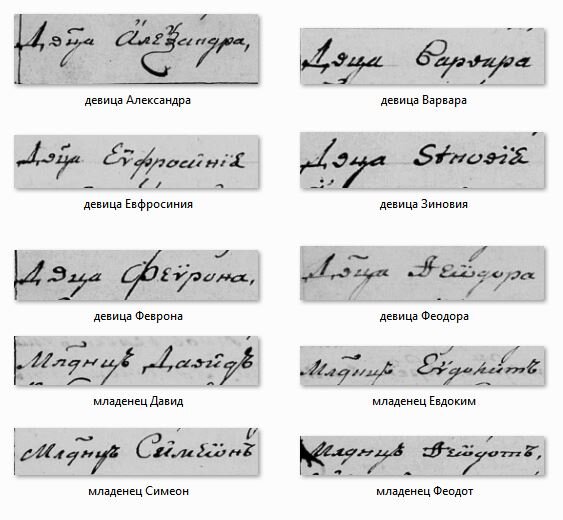 Двца Алеѯандра,
Двца Варвара
девица Александра
девица Варвара
Двца Еѵфросинїѧ
Двца Ѕиновїѧ
девица Евфросиния
девица Зиновия
Двца Феѵрона,
Двца Ѳеѡдора
девица Феврона
девица Феодора
Млднцъ Давидъ
Млднцъ Еѵдокимъ
младенец Давид
младенец Евдоким
Млднцъ Симеѡнъ
Млднцъ Ѳеѡдотъ,
младенец Симеон
младенец Феодот